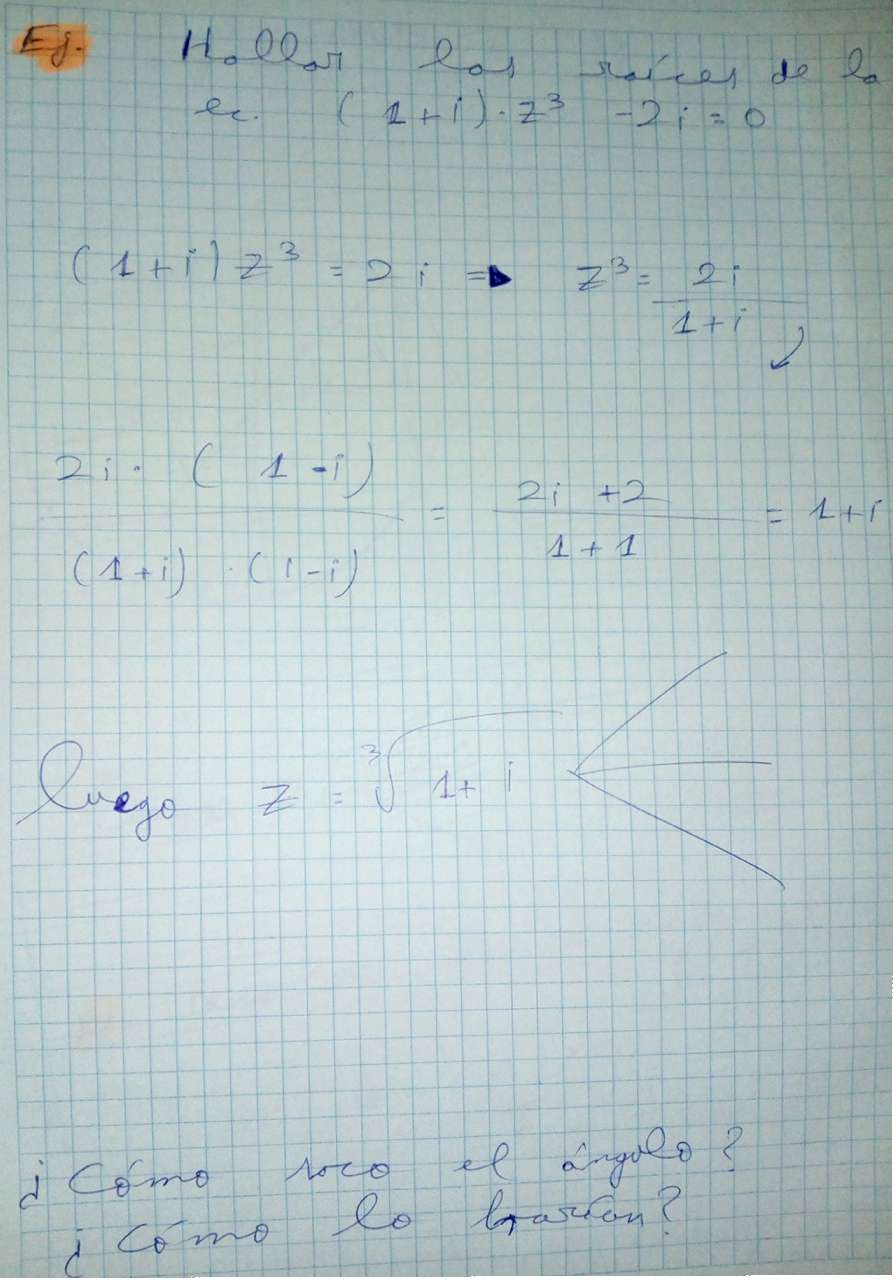 Ej. Hallar las raíces de la
ec. (1+i)·z³ -2i=0
(1+i)z³ = 2i => z³= 2i / 1+i
2i·(1-i) / (1+i)·(1-i) = 2i+2 / 1+1 = 1+i
luego z = ³√1+i
¿Cómo saco el ángulo?
¿Cómo lo harían?